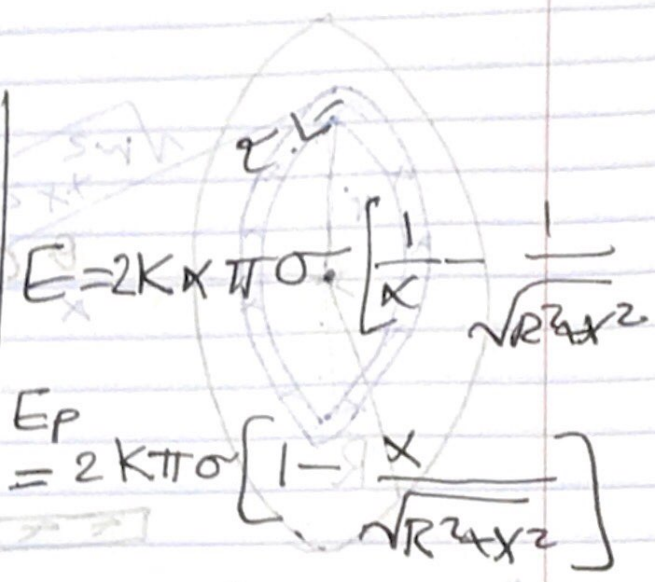 E = 2Kxπσ. [1/x - 1/√R²+x²
Ep
= 2Kπσ [1 - x/√R²+x²]